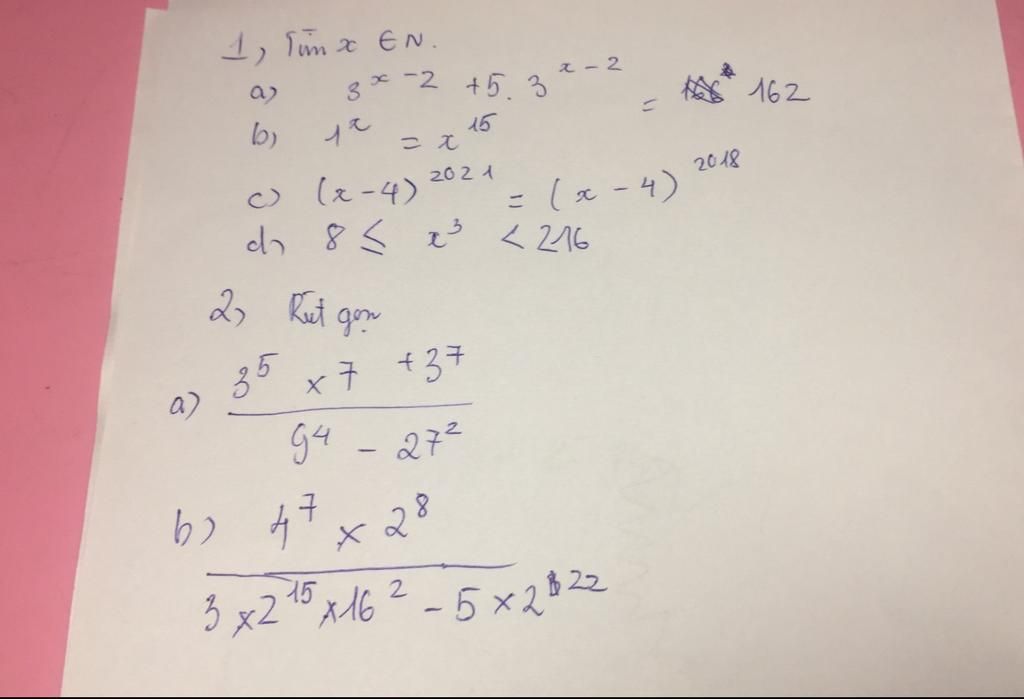 1, Tìm x ∈ N.
a) 3^{x-2} + 5. 3^{x-2} = 162
b) 1^x = x^{15}
c) (x-4)^{2021} = (x-4)^{2018}
d) 8 ≤ x^3 < 216
2, Rút gọn
a) \frac{3^5 × 7 + 3^7}{9^4 - 27^2}
b) \frac{4^7 × 2^8}{3 × 2^{15} × 16^2 - 5 × 2^{22}}